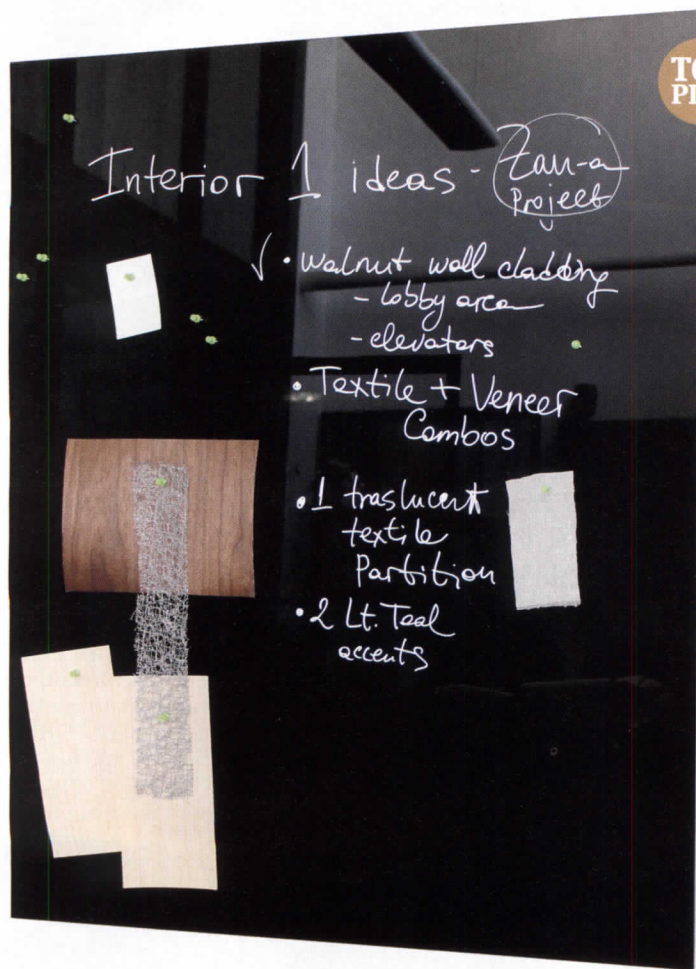 Interior 1 ideas - Zan-a
Project
✓ • walnut wall cladding
- lobby area
- elevators
• Textile + Veneer
Combos
• 1 traslucent
textile
Partition
• 2 Lt. Teal
accents